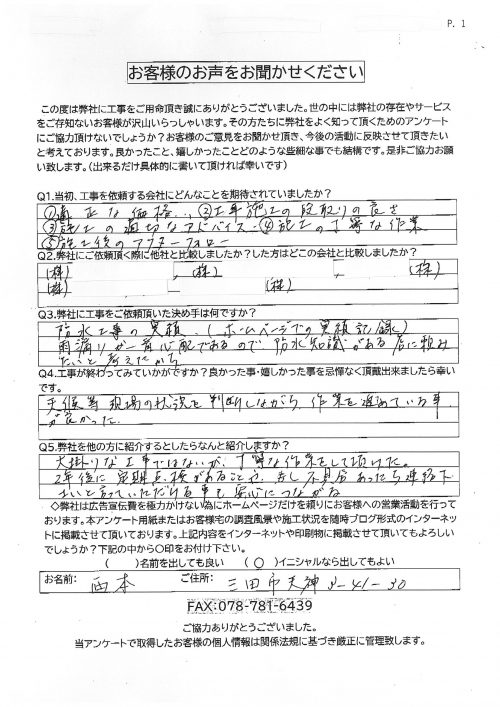 P. 1
お客様のお声をお聞かせください
この度は弊社に工事をご用命頂き誠にありがとうございました。世の中には弊社の存在やサービス
をご存知ないお客様が沢山いらっしゃいます。その方たちに弊社をよく知って頂くためのアンケート
にご協力頂けないでしょうか？お客様のご意見をお聞かせ頂き、今後の活動に反映させて頂きたい
と考えております。良かったこと、嬉しかったことどのような些細な事でも結構です。是非ご協力お願
い致します。（出来るだけ具体的に書いて頂ければ幸いです）
Q1.当初、工事を依頼する会社にどんなことを期待されていましたか？
①適正な価格、②工事施工の段取りの良さ
③施工の適切なアドバイス、④施工の丁寧な作業
⑤施工後のアフターフォロー
Q2.弊社にご依頼頂く際に他社と比較しましたか？した方はどこの会社と比較しましたか？
(株) , (株) , (株)
(株) , (株)
Q3.弊社に工事をご依頼頂いた決め手は何ですか？
防水工事の実積、（ホームページでの実積記録）
雨漏りが一番心配であるので防水知識がある店に頼み
たいと考えたから
Q4.工事が終わってみていかがですか？良かった事・嬉しかった事を忌憚なく頂戴出来ましたら幸い
です。
天候等現場の状況を判断しながら、作業を進めている事
が良かった
Q5.弊社を他の方に紹介するとしたらなんと紹介しますか？
大掛りな工事ではないが、丁寧な作業をして頂けた。
2年後に定期点検があることや、もし不具合あったら連絡下
さいと言っていただける事も安心につながる
◇弊社は広告宣伝費を極力かけない為にホームページだけを頼りにお客様への営業活動を行って
おります。本アンケート用紙またはお客様宅の調査風景や施工状況を随時ブログ形式のインターネッ
トに掲載させて頂いております。上記内容をインターネットや印刷物に掲載させて頂いてもよろしい
でしょうか？下記の中から○印をお付け下さい。
（　）名前を出しても良い　（○）イニシャルなら出してもよい
お名前： 西本　ご住所： 三田市天神3-41-30
FAX:078-781-6439
ご協力ありがとうございました。
当アンケートで取得したお客様の個人情報は関係法規に基づき厳正に管理致します。